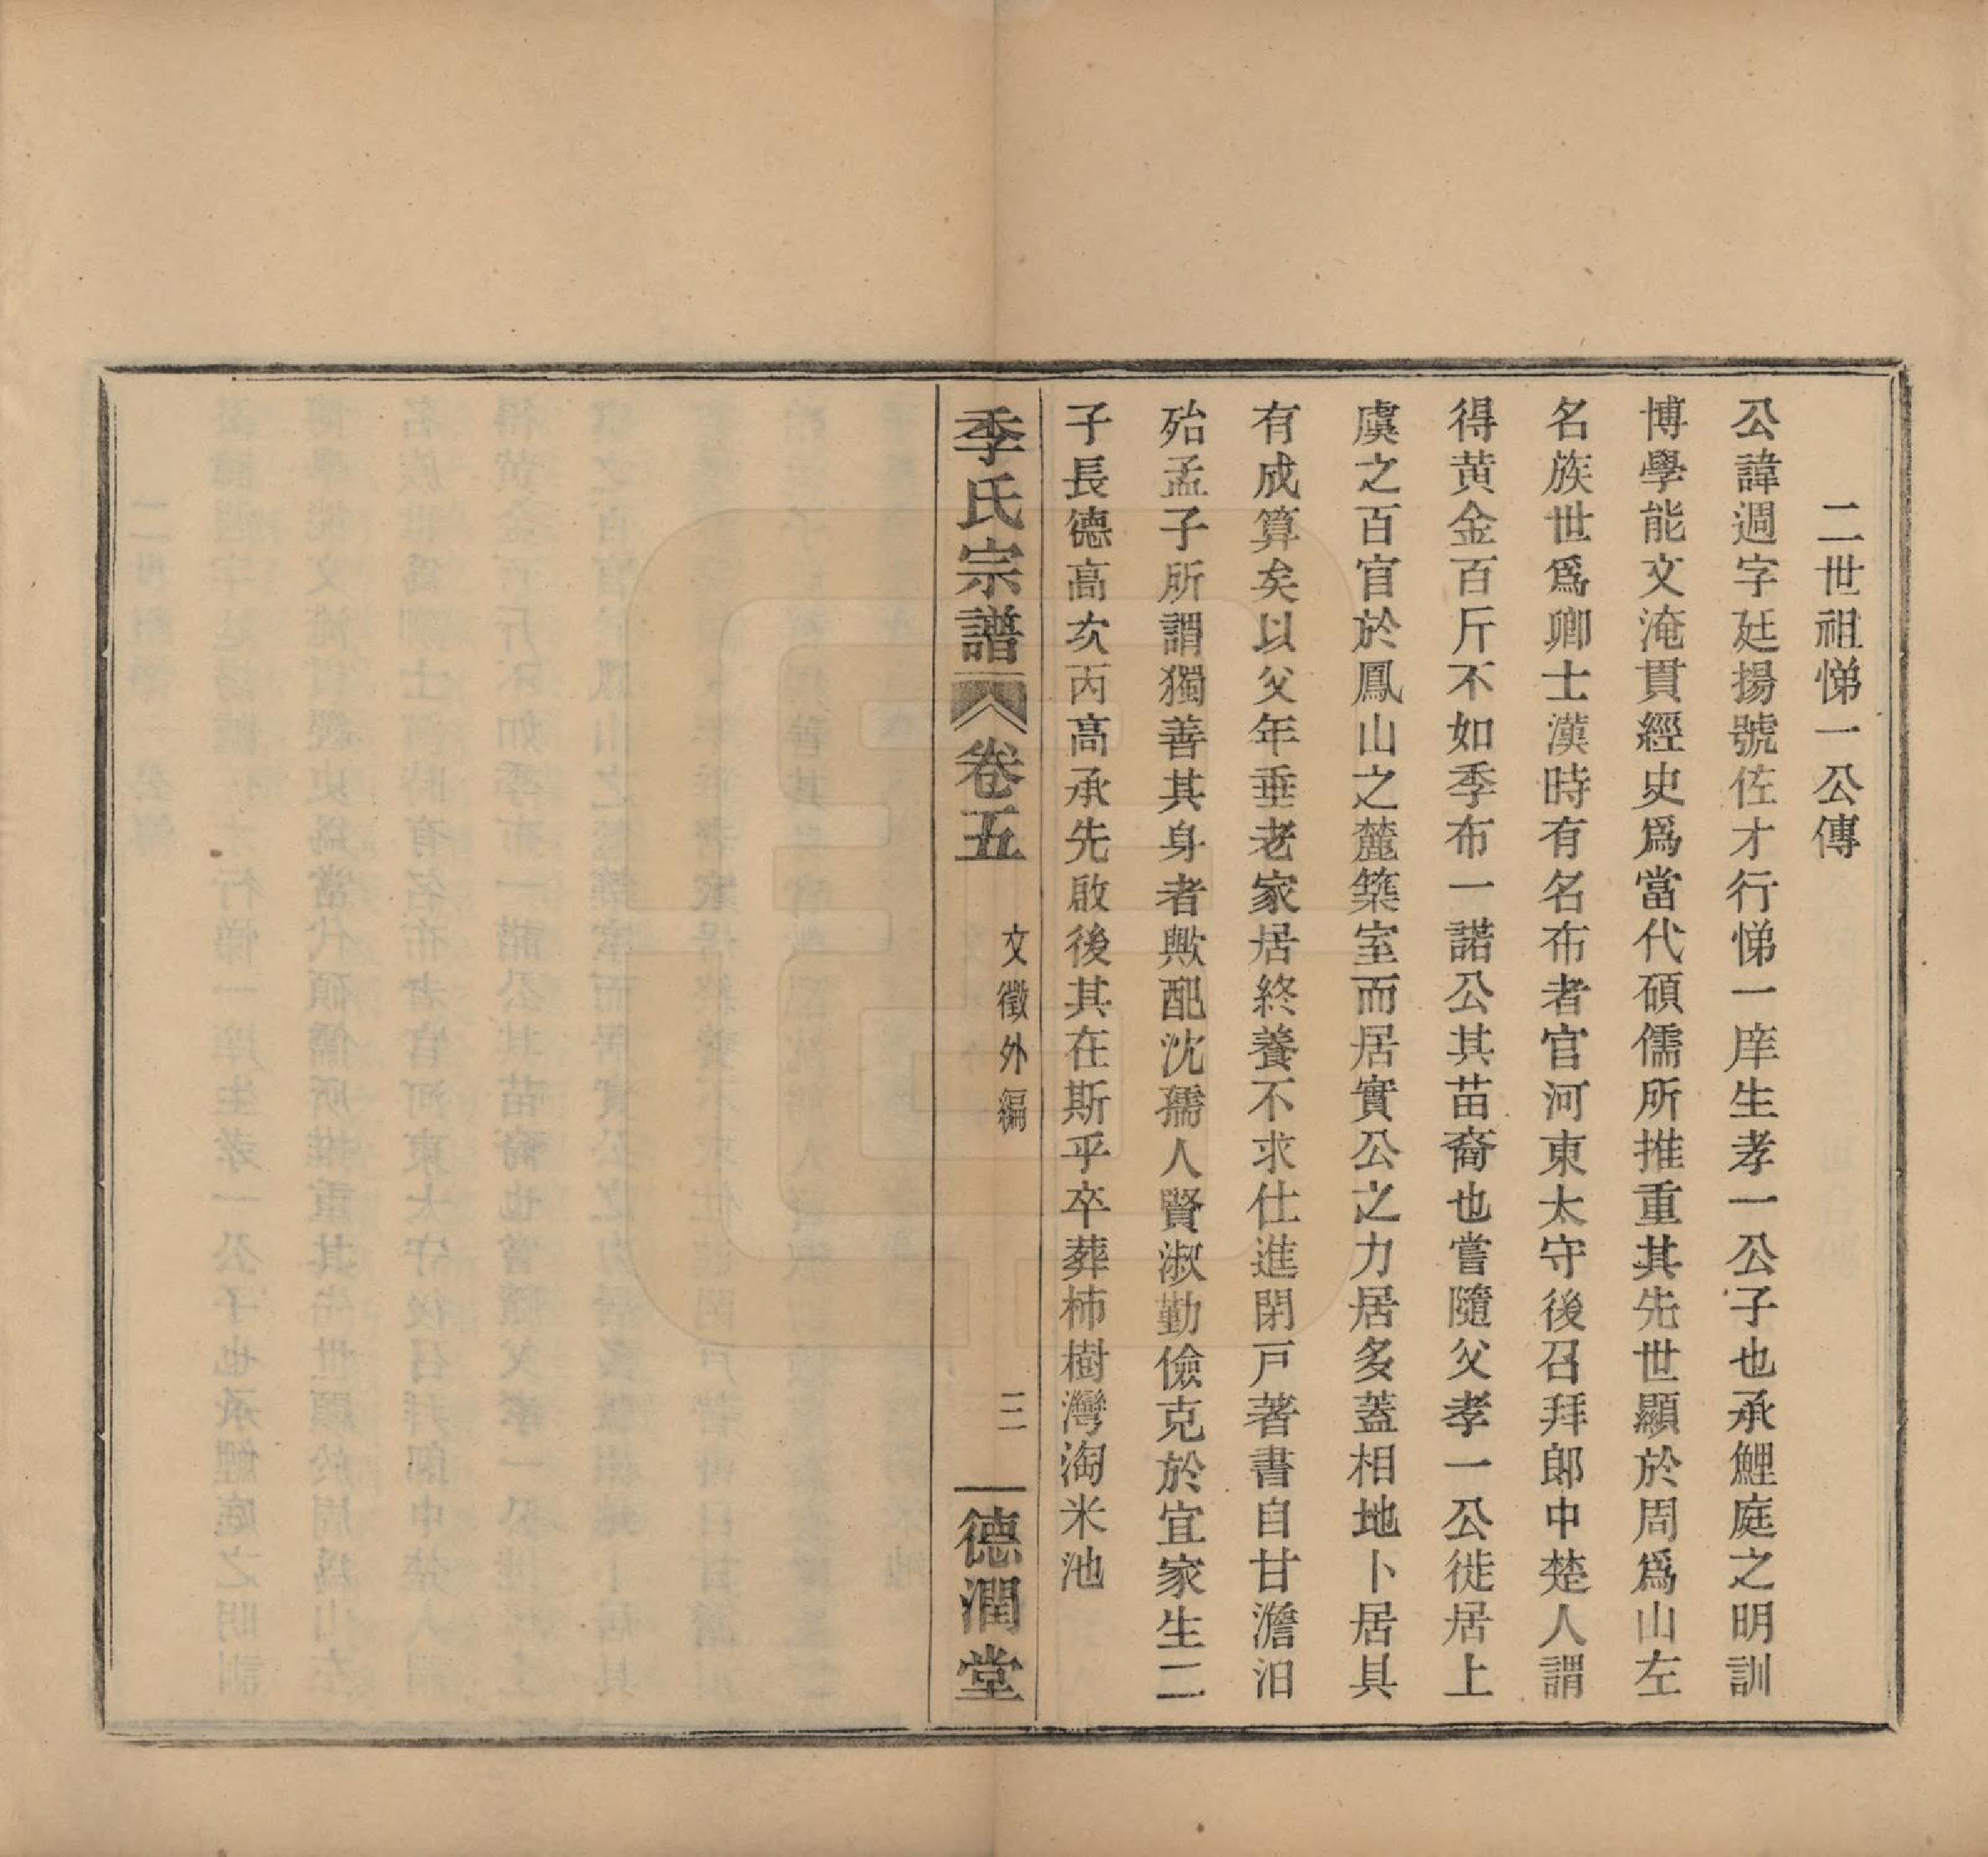 二世祖悌一公傳
公諱週字廷揚號佐才行悌一庠生孝一公子也承鯉庭之明訓
博學能文淹貫經史爲當代碩儒所推重其先世顯於周爲山左
名族世爲卿士漢時有名布者官河東太守後召拜郎中楚人謂
得黄金百斤不如季布一諾公其苗裔也嘗隨父孝一公徙居上
虞之百官於鳳山之麓築室而居實公之力居多蓋相地卜居具
有成算矣以父年垂老家居終養不求仕進閉戸著書自甘澹汨
殆孟子所謂獨善其身者歟配沈孺人賢淑勤儉克於宜家生二
子長德高次丙高承先啟後其在斯乎卒葬柿樹灣淘米池
季氏宗譜 卷五 文徵外編 三 德潤堂